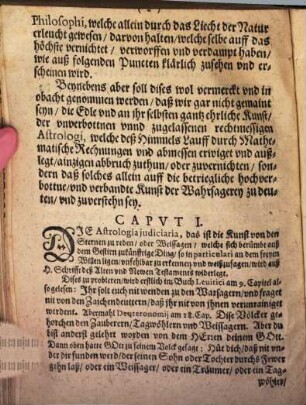 Philosophi, welche allein durch das Liecht der Natur
erleucht gewesen / darvon halten / welche selbe auff das
höchste vernichtet / verworffen vnd verdampt haben /
wie auß folgenden Puncten klärlich zusehen vnd er-
scheinen wird.
Beynebens aber soll dises wol vermerckt vnd in
obacht genommen werden / daß wir gar nicht gemaint
seyn / die Edle vnd an ihr selbsten gantz ehrliche Kunst /
der vnverbottnen vnnd zugelassenen rechtmessigen
Astrologi, welche deß Himmels Lauff durch Mathe-
matische Rechnungen vnd abmessen erviget vnd auß-
legt / ainzigen abbruch zuthun / oder zuvernichten / son-
dern daß solches allein auff die betriegliche hochver-
bottne / vnd verbandte Kunst der Wahrsagerey zu deu-
ten / vnd zuverstehn sey.
CAPVT I.
DIE Astrologia judiciaria, das ist die Kunst von den
Sternen zu reden / oder Weissagen / welche sich berümbt auß
dem Gestirn zukünfftige Ding / so in particulari an dem freyen
Willen ligen / vnfehlbar zu erkennen vnd weißzusagen / wird auß
H. Schrifft deß Alten vnd Newen Testaments widerlegt.
Dises zu probieren / wird erstlich im Buch Levitici am 9. Capitel
also gelesen: Ihr solt euch nit wenden zu den Warsagern / vnd fraget
nit von den Zaichendeuttern / daß jhr nit von jhnen verunrainiget
werdet. Abermahl Deuteronomij am 18. Cap. Dise Völcker ge-
horchen den Zauberern / Tagwöhlern vnd Weissagern. Aber du
bist anderst gelehrt worden von dem HErren deinem GOtt.
Dann oben hatte GOtt zu seinem Volck gesagt: Hüt dich / daß nit vn-
der dir funden werd / der seinen Sohn oder Tochter durchs Fewer
gehn laß / oder ein Weissager / oder ein Träumer / oder ein Tag-
wöhler /